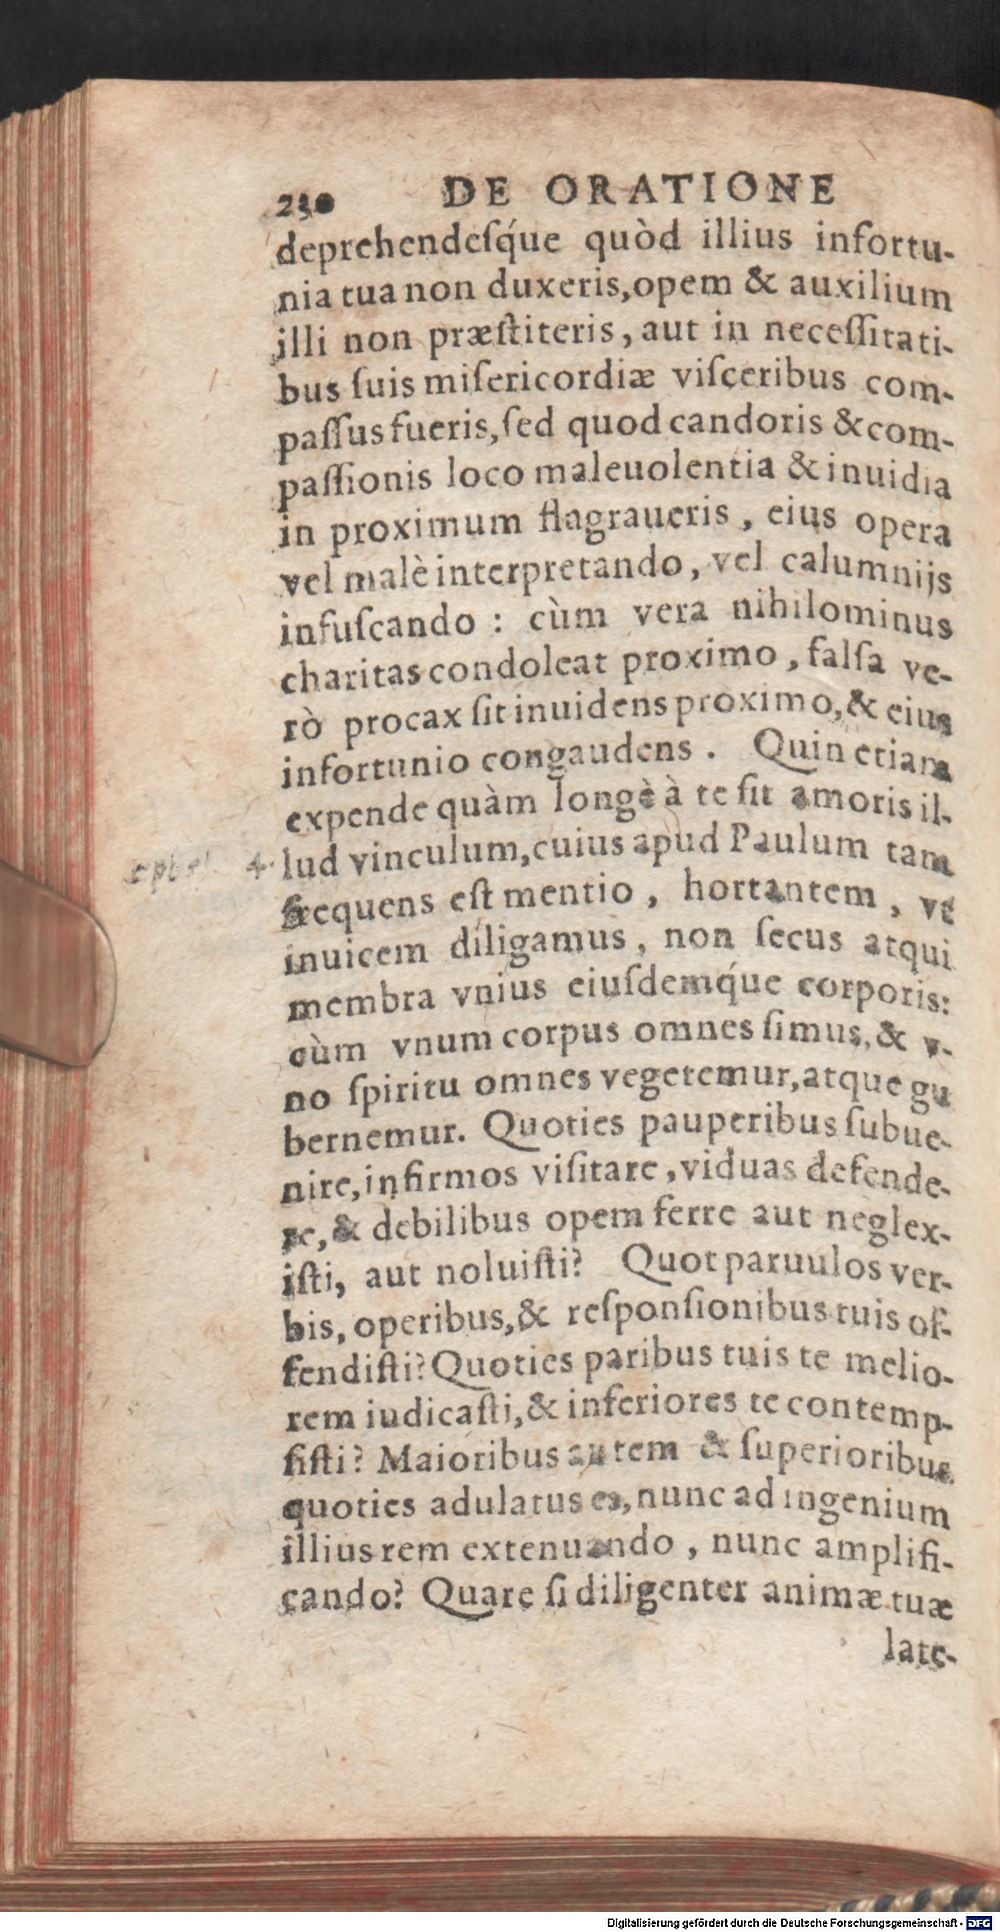 230 DE ORATIONE
deprehendeſq́ue quòd illius infortu-
nia tua non duxeris, opem & auxilium
illi non præſtiteris, aut in neceſſitati-
bus ſuis miſericordiæ viſceribus com-
paſſus fueris, ſed quod candoris & com-
paſſionis loco maleuolentia & inuidia
in proximum flagraueris, eius opera
vel malè interpretando, vel calumnijs
infuſcando: cùm vera nihilominus
charitas condoleat proximo, falſa ve-
rò procax ſit inuidens proximo, & eius
infortunio congaudens. Quin etiam
expende quàm longè à te ſit amoris il-
lud vinculum, cuius apud Paulum tam
frequens eſt mentio, hortantem, vt
inuicem diligamus, non ſecus atqui
membra vnius eiuſdemq́ue corporis:
cùm vnum corpus omnes ſimus, & v-
no ſpiritu omnes vegetemur, atque gu
bernemur. Quoties pauperibus ſubue-
nire, infirmos viſitare, viduas defende-
re, & debilibus opem ferre aut neglex-
iſti, aut noluiſti? Quot paruulos ver-
bis, operibus, & reſponſionibus tuis of-
fendiſti? Quoties paribus tuis te melio-
rem iudicaſti, & inferiores te contemp-
ſiſti? Maioribus autem & ſuperioribus
quoties adulatus es, nunc ad ingenium
illius rem extenuando, nunc amplifi-
cando? Quare ſi diligenter animæ tuæ
late-
ephes 4.
Digitalisierung gefördert durch die Deutsche Forschungsgemeinschaft - DFG